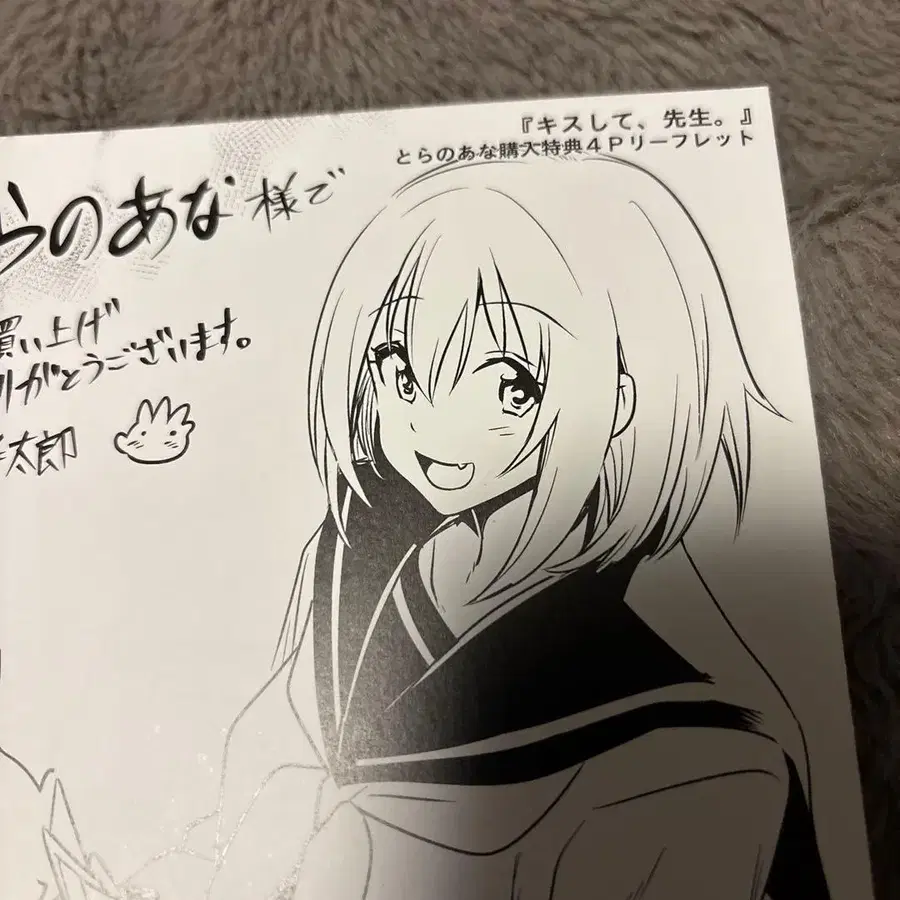 『キスして、先生。』
とらのあな購入特典4Pリーフレット
らのあな様で
買い上げ
りがとうございます。
太郎